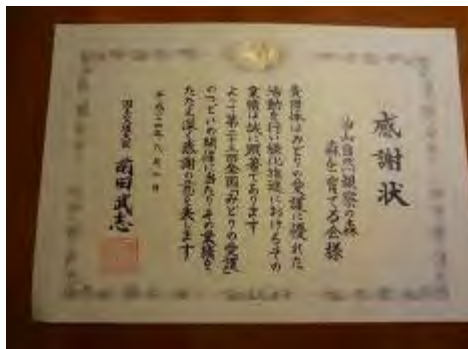 感謝状
油山自然観察の森
森を育てる会様
貴団体はみどりの愛護に優れた
活動を行い緑化推進におけるその
業績は誠に顕著であります
よって第二十三回全国「みどりの愛護」
のつどいの開催に当たりその業績を
たたえ深く感謝の意を表します
平成二十四年六月
国土交通大臣 前田武志